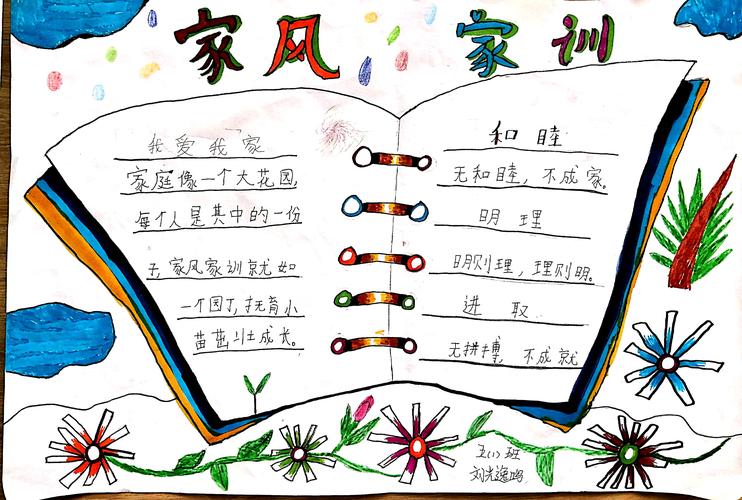 家风 家训
我爱我家
家庭像一个大花园,
每个人是其中的一份
子,家风家训就如
一个园丁,抚育小
苗茁壮成长。
和睦
无和睦,不成家。
明理
明则理,理则明。
进取
无拼搏,不成就
五(1)班
刘光逸